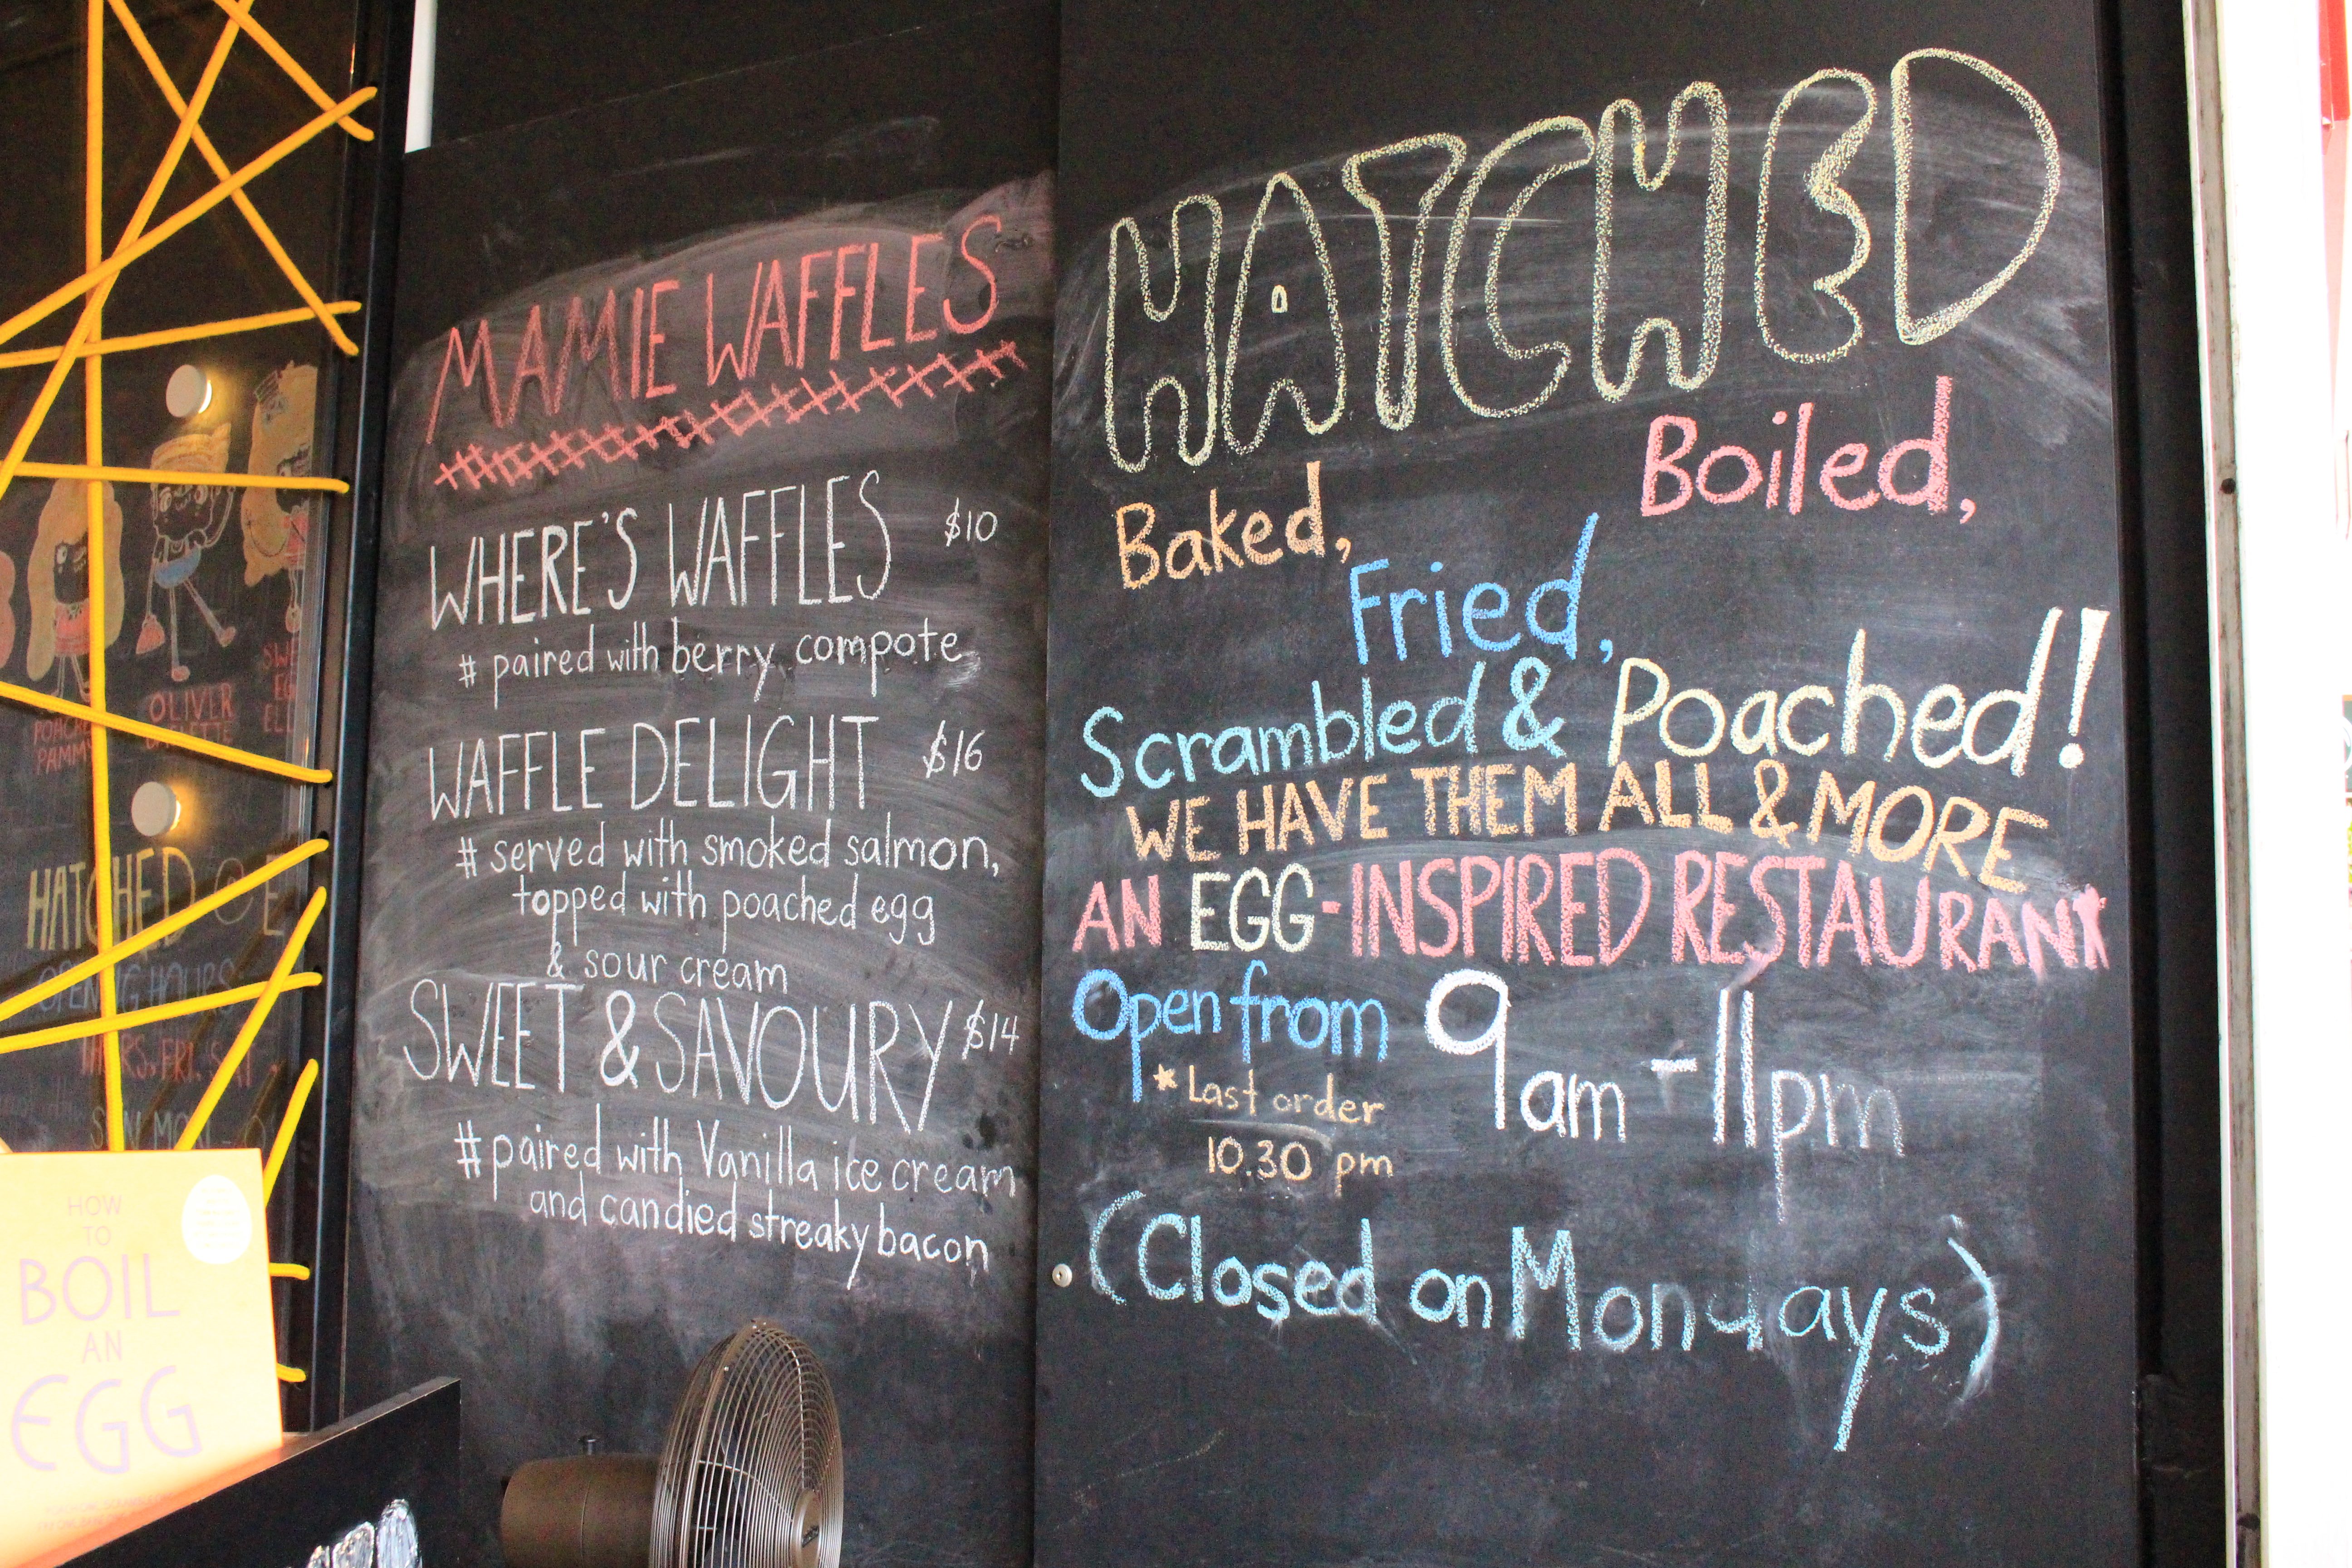 MAMIE WAFFLES
WHERE'S WAFFLES $10
# paired with berry compote
WAFFLE DELIGHT $16
# served with smoked salmon,
topped with poached egg
& sour cream
SWEET & SAVOURY $14
# paired with Vanilla ice cream
and candied streaky bacon
HATCHED
Baked, Boiled,
Fried,
Scrambled & Poached!
WE HAVE THEM ALL & MORE
AN EGG-INSPIRED RESTAURANT
Open from 9am - 11pm
* Last order
10.30 pm
(Closed on Mondays)
OLIVER
PAMMY
HATCHED @ E
OPENING HOURS
HOW
TO
BOIL
AN
EGG